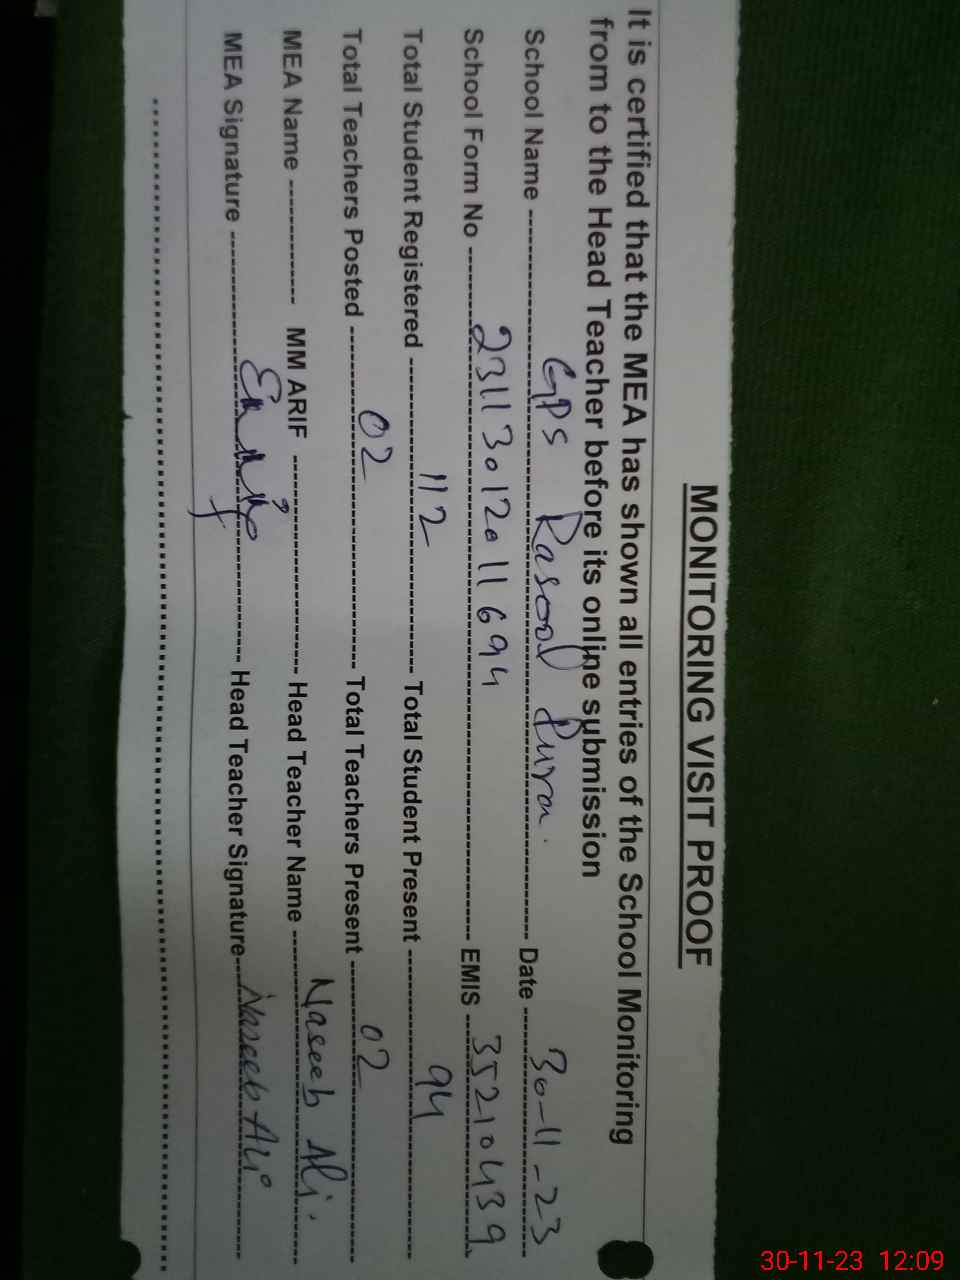 MONITORING VISIT PROOF
It is certified that the MEA has shown all entries of the School Monitoring
from to the Head Teacher before its online submission
School Name GPS Rasool Puran. Date 30-11-23
School Form No 23113012011694 EMIS 35210439
Total Student Registered 112 Total Student Present 94
Total Teachers Posted 02 Total Teachers Present 02
MEA Name MM ARIF Head Teacher Name Naseeb Ali.
MEA Signature Head Teacher Signature Naseeb Ali
30-11-23 12:09